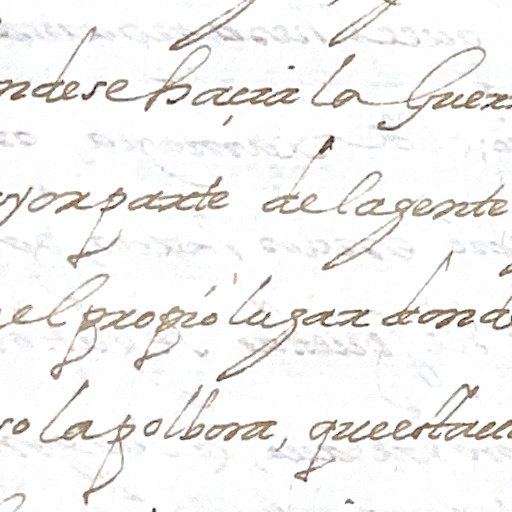 ndese haçia la Guerr
yor parte de la gente
el propio lugar donde
so la polbora, que estaua